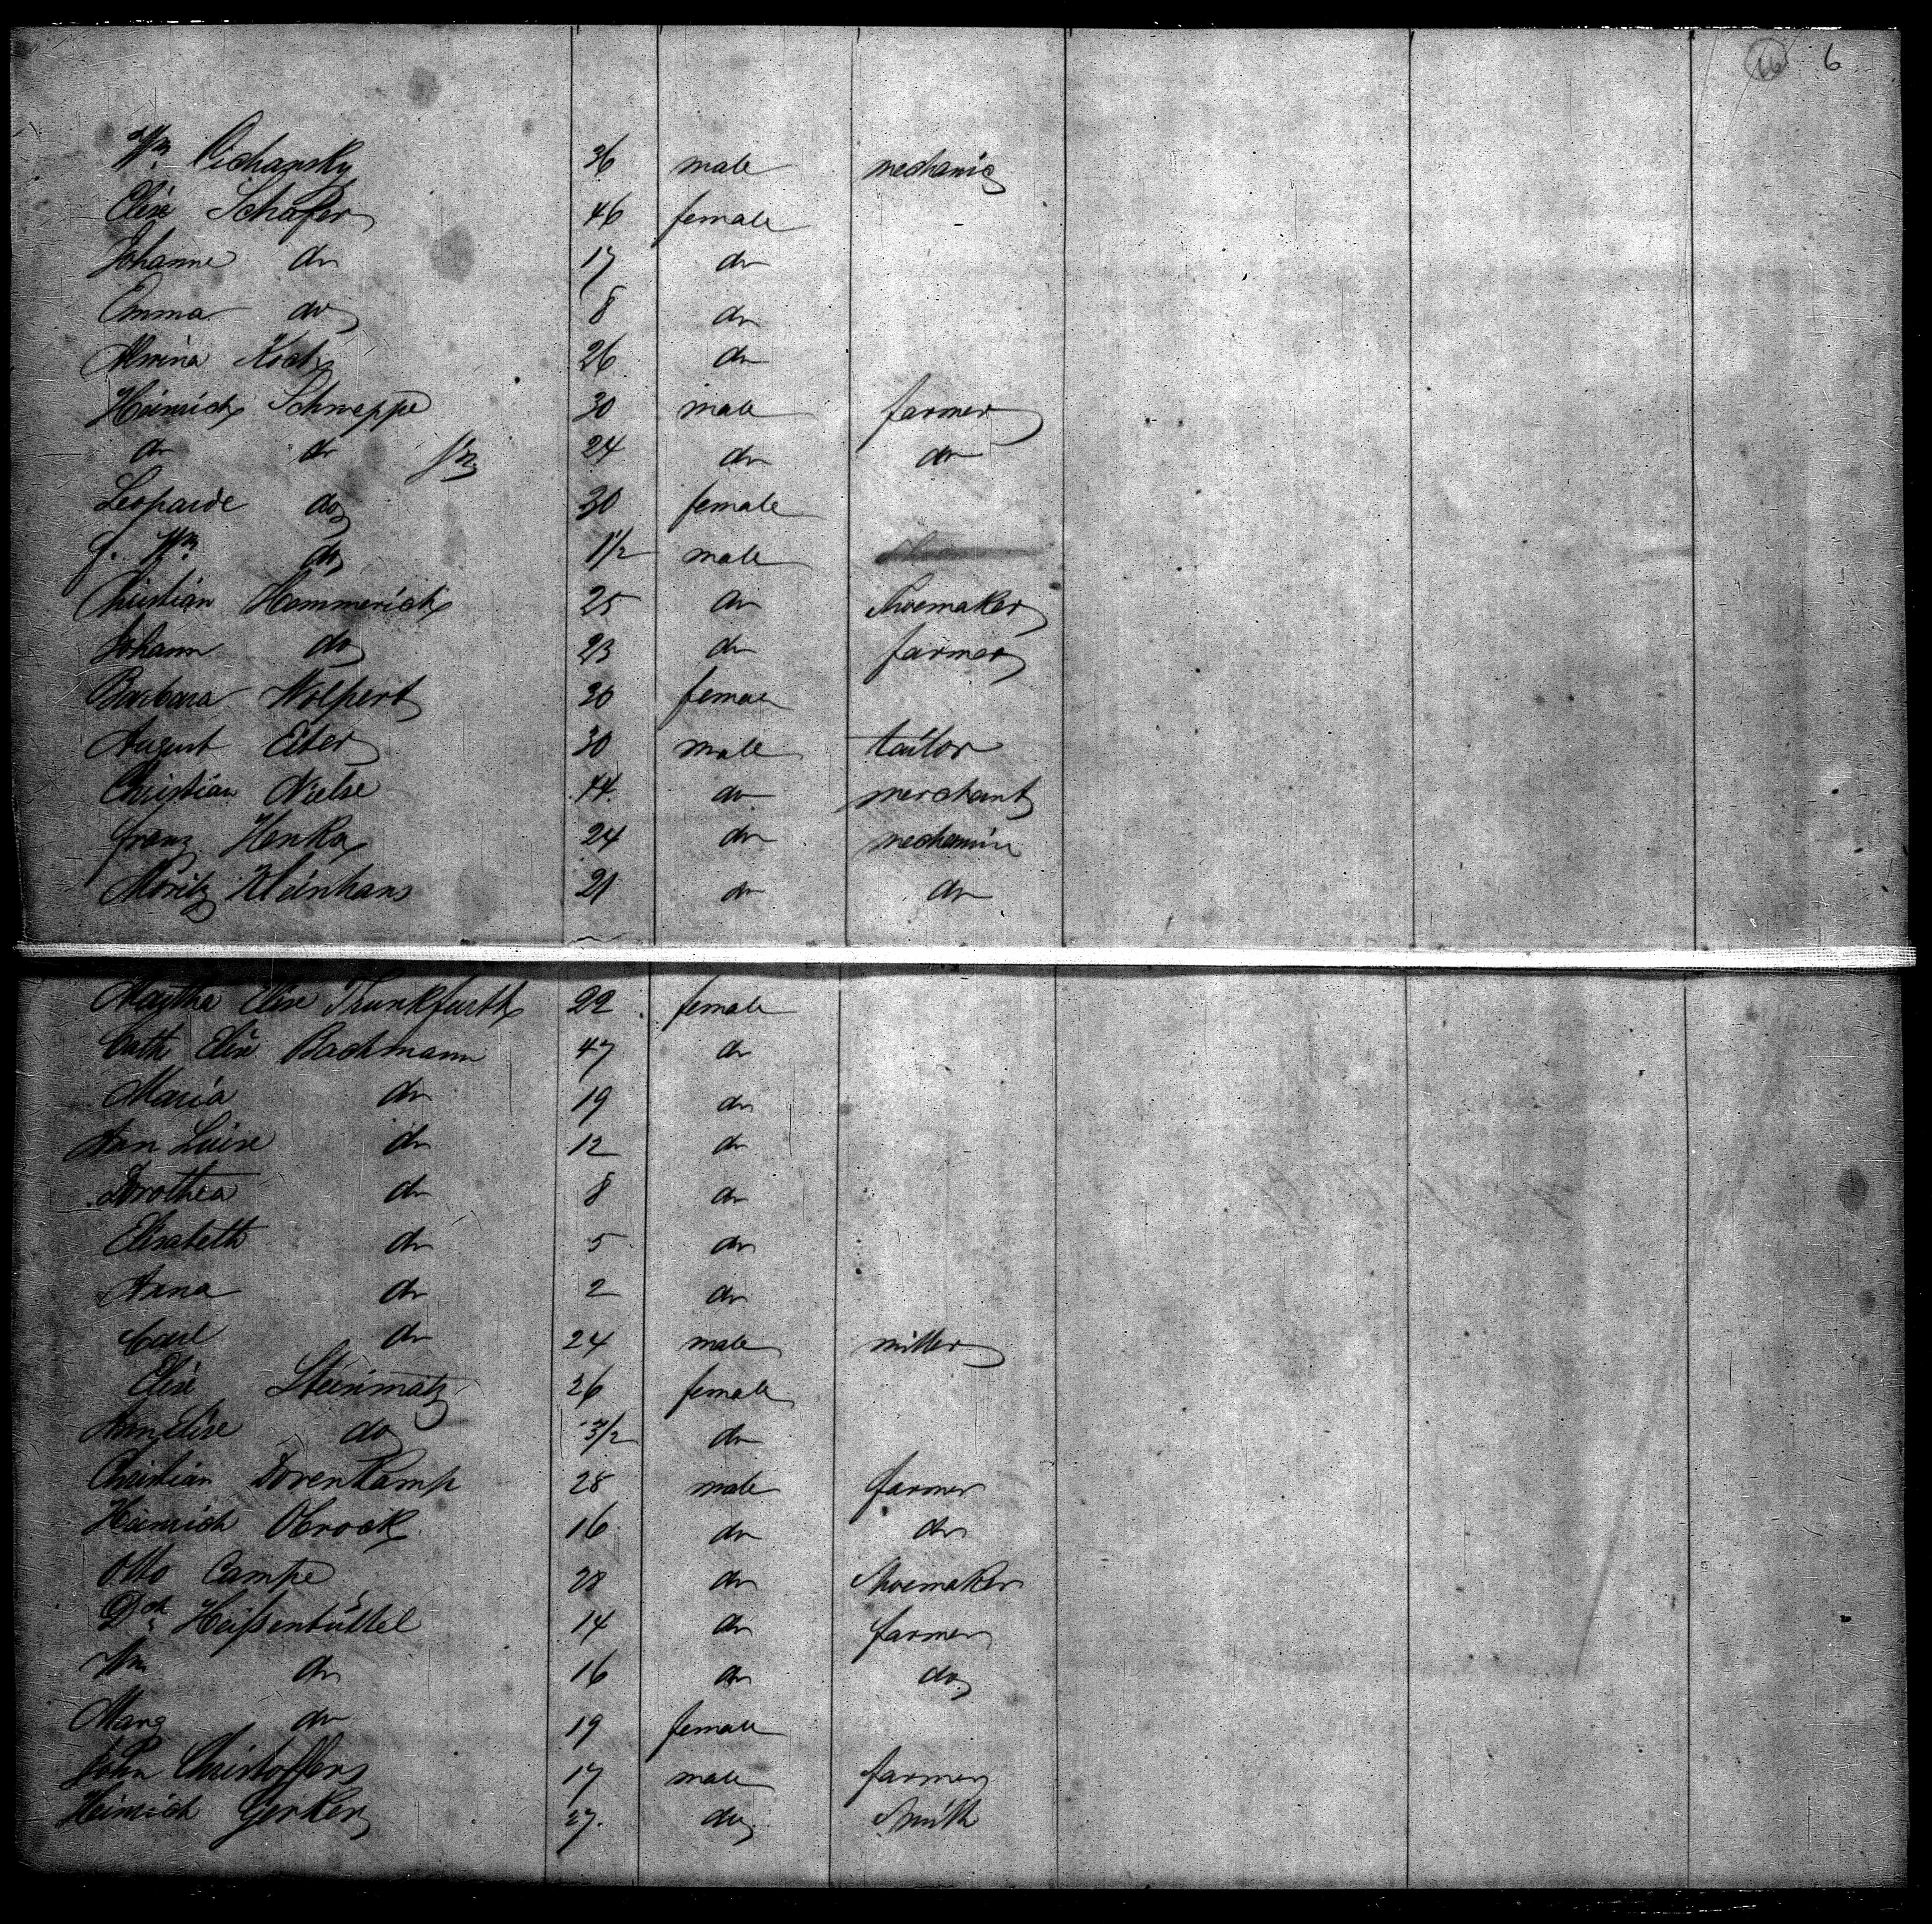 6
Wm. Pichansky 36 male mechanic
Elise Schäfer 46 female
Johanne do 17 do
Emma do 8 do
Alwina Koch 26 do
Heinrich Schneppe 30 male farmer
do do jr 24 do do
Leoparde do 30 female
F. Wm do 1 1/2 male
Christian Hemmerich 25 do Shoemaker
Johann do 23 do farmer
Barbara Wolpert 30 female
August Eber 30 male tailor
Christian Nielse 44 do merchant
Franz Henka 24 do mechanic
Moritz Kleinhans 21 do do
Martha Elise Trunkfurth 22 female
Cath Elise Bachmann 47 do
Maria do 19 do
Ann Luise do 12 do
Dorothea do 8 do
Elisabeth do 5 do
Anna do 2 do
Carl do 24 male miller
Elise Steinmatz 26 female
Ann Elise do 3/2 do
Christian Dorenkamp 28 male farmer
Heinrich Obrock 16 do do
Otto Campe 28 do Shoemaker
Heißenbüttel 14 do farmer
Wm do 16 do do
Marg do 19 female
John Christoffers 17 male farmer
Heinrich Gerken 27. do Smith